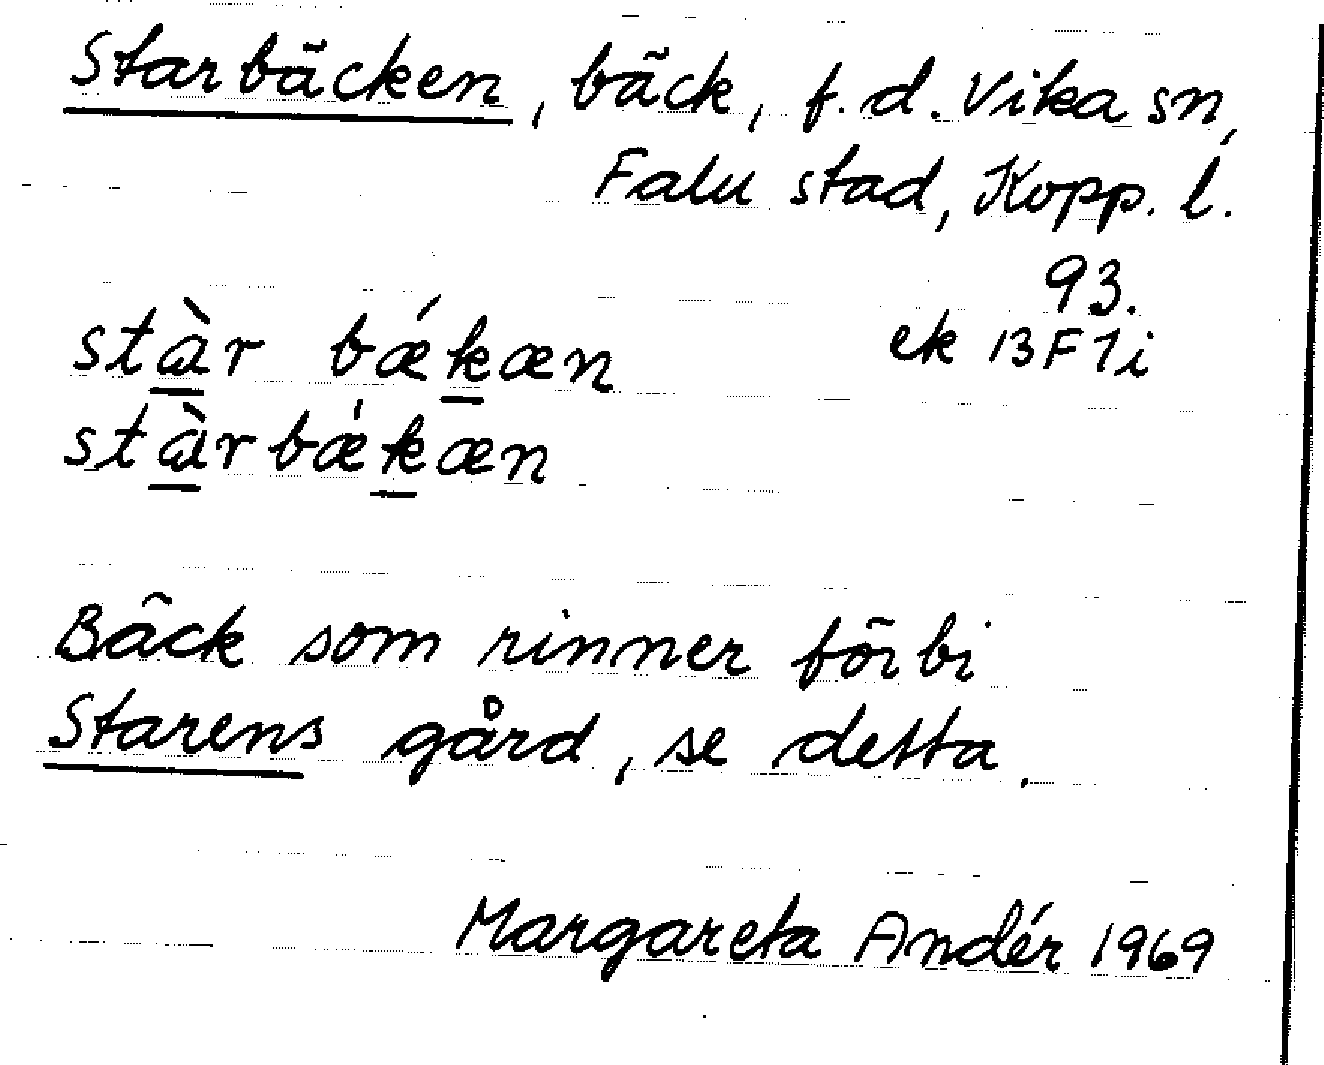 Starbäcken, bäck, f.d. Vika sn,
Falu stad, Kopp. l.
93.
stàr bǽkæn ek 13F7i
stàrbǽkæn
Bäck som rinner förbi
Starens gård, se detta.
Margareta Andér 1969